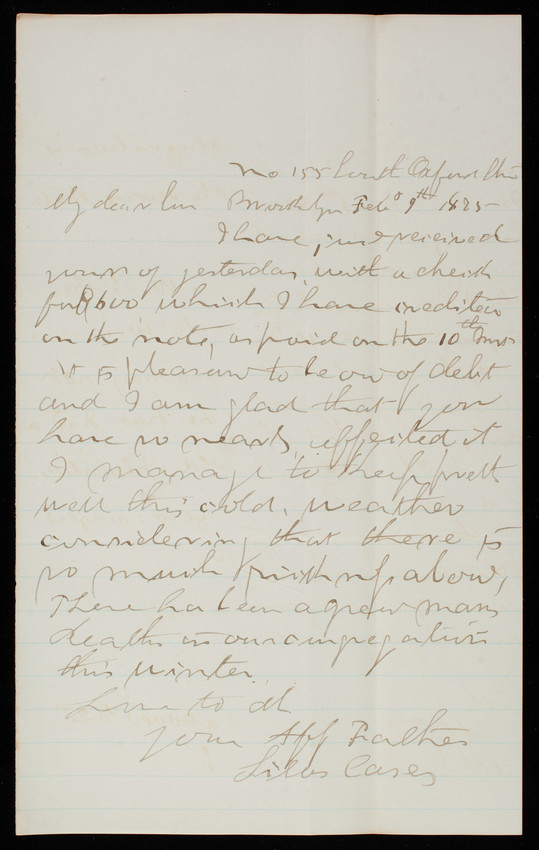 No 155 South Oxford St
My dear Son Brooklyn Feb 9th 1875
I have just received
yours of yesterday, with a check
for $600 which I have credited
on the note, as paid on the 10th Inst
It is pleasure to be out of debt
and I am glad that you
have so nearly effected it
I manage to keep pretty
well this cold, weather
considering that there is
so much sickness about,
There has been a great many
deaths in our congregation
this winter.
Love to all
Your Aff Father
Silas Casey